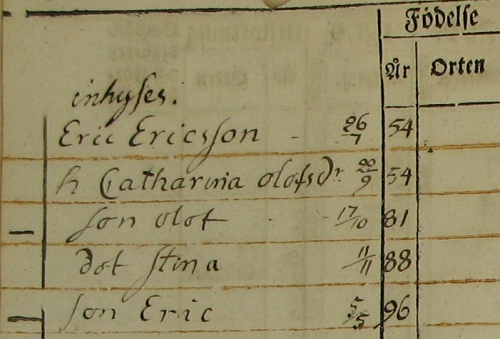 Födelse
År Orten
inhyses.
Eric Ericsson - 26/7 54
h Catharina olofsdr 22/9 54
son olof - 17/10 81
dot stina 11/11 88
son Eric 5/5 96